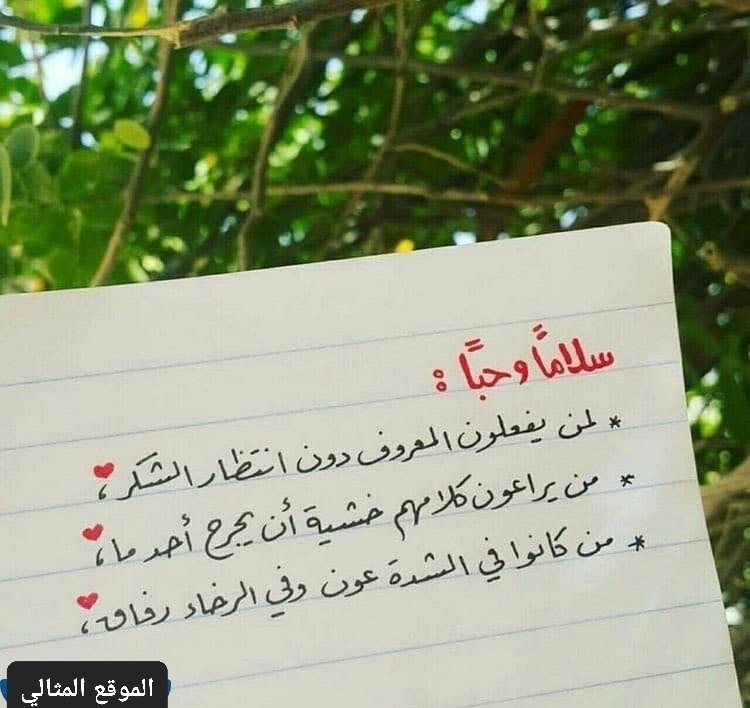 سلامًا وحبًا :
* لمن يفعلون المعروف دون انتظار الشكر ،
* من يراعون كلامهم خشية أن يجرح أحد ما ،
* من كانوا في الشدة عون وفي الرخاء رفاق ،
الموقع المثالي